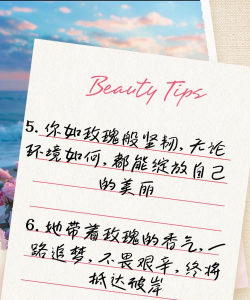 Beauty Tips
5. 你如玫瑰般坚韧，无论
环境如何，都能绽放自己
的美丽
6. 她带着玫瑰的香气，一
路追梦，不畏艰辛，终将
抵达彼岸